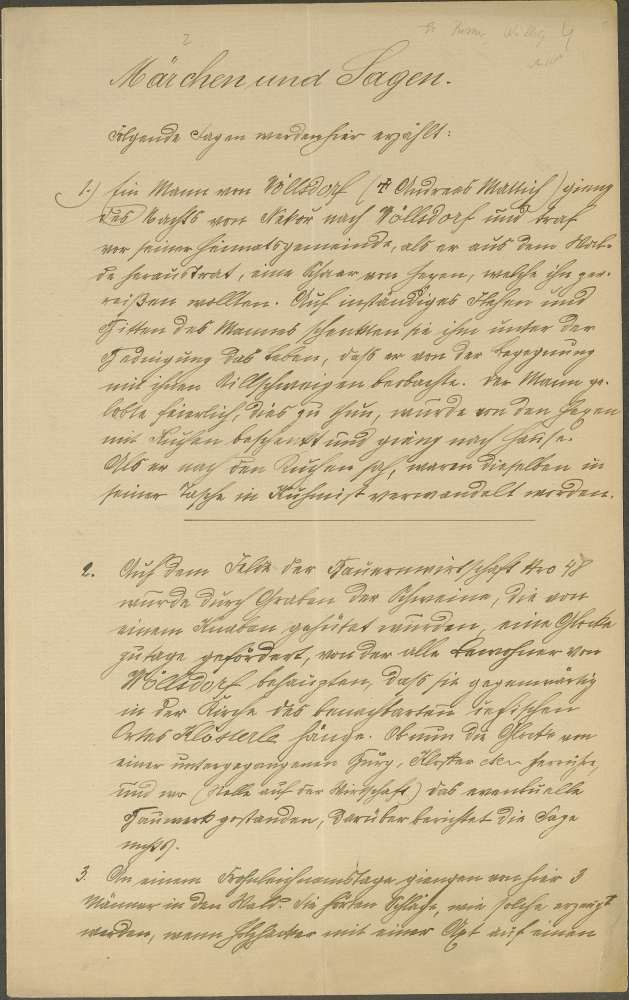 2
4
Märchen und Sagen.
Folgende Sagen werden hier erzählt:
1.) Ein Mann von Wöllsdorf († Andreas Mattich) gieng
des Nachts von Nekoř nach Wöllsdorf und traf
vor seiner Heimatsgemeinde, als er aus dem Wal-
de heraustrat, eine Schaar von Hexen, welche ihn zer-
reißen wollten. Auf inständiges Flehen und
Bitten des Mannes schenkten sie ihm unter der
Bedingung das Leben, daß er von der Begegnung
mit ihnen Stillschweigen beobachte. Der Mann ge-
lobte feierlich, dies zu thun, wurde von den Hexen
mit Kuchen beschenkt und gieng nach Hause.
Als er nach den Kuchen sah, waren dieselben in
seiner Tasche in Kuhmist verwandelt worden.
2. Auf dem Felde der Bauernwirtschaft Nro 48
wurde durch Graben der Schweine, die von
einem Knaben gehütet wurden, eine Glocke
zutage gefördert, von der alle Bewohner von
Wöllsdorf behaupten, daß sie gegenwärtig
in der Kirche des benachbarten
Ortes Klösterle hänge. Ob nun die Glocke von
einer untergegangenen Burg, Kloster etc. herrühre,
und wo (Stelle auf der Wirtschaft) das eventuelle
Bauwerk gestanden, darüber berichtet die Sage
nichts.
3. An einem Frohnleichnamstage giengen von hier 3
Männer in den Wald. Sie hörten Schläge, wie solche erzeugt
werden, wenn Holzhacker mit einer Axt auf einen